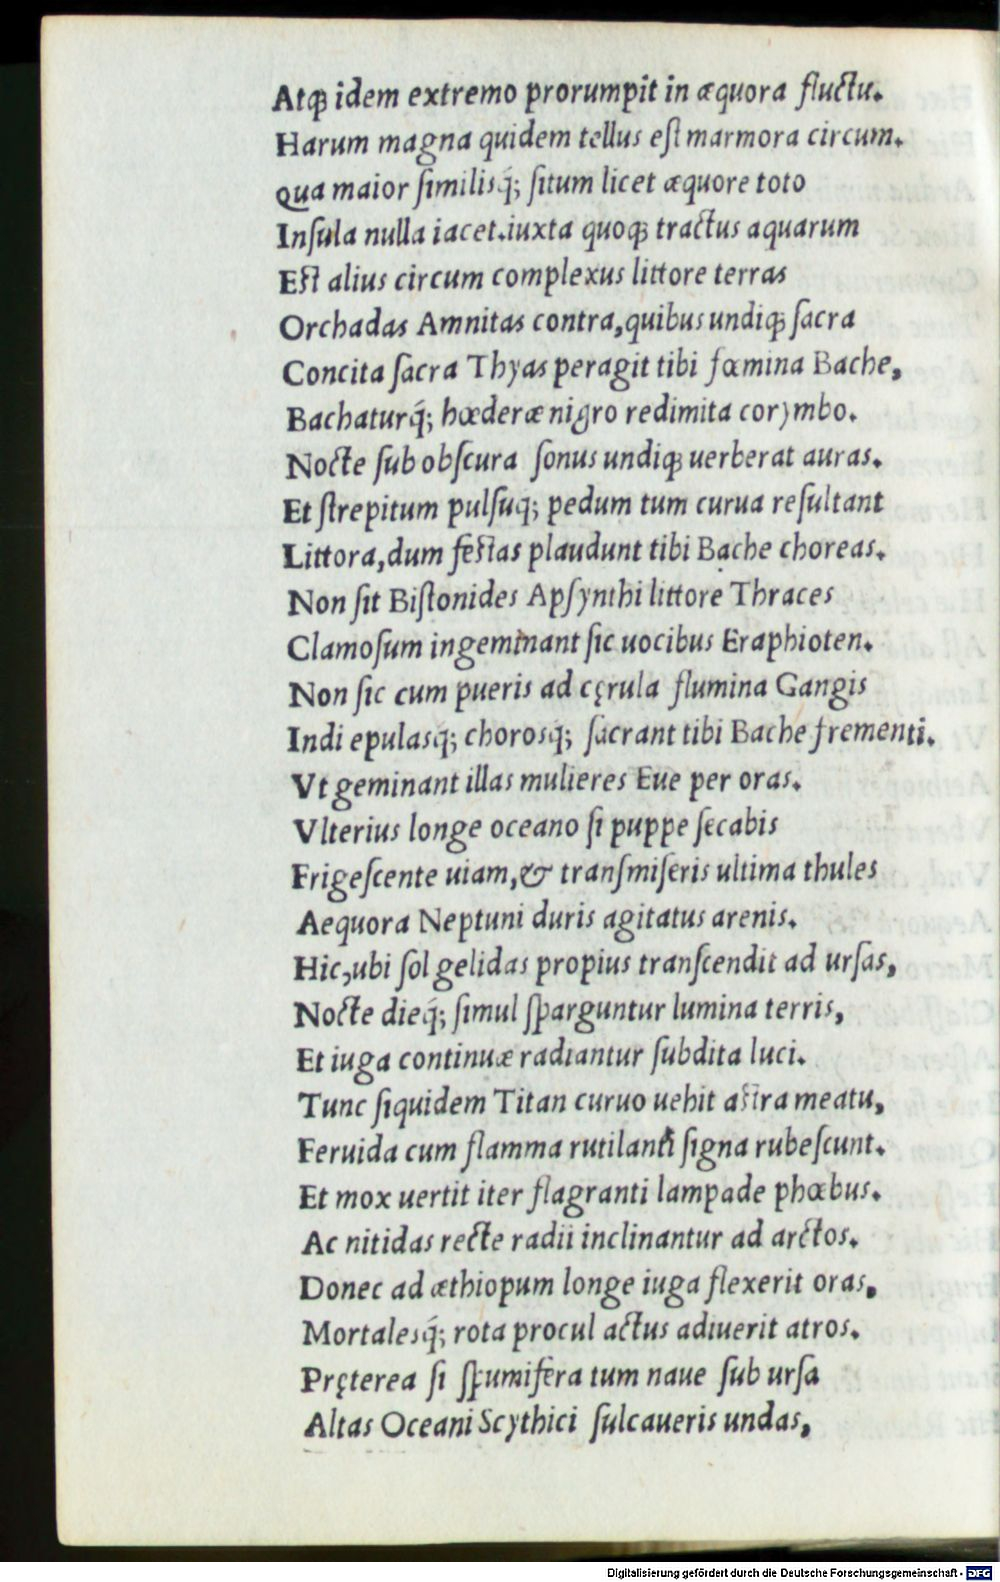 Atq̃ idem extremo prorumpit in æquora fluctu.
Harum magna quidem tellus eſt marmora circum.
Qua maior ſimilisq́; ſitum licet æquore toto
Inſula nulla iacet.iuxta quoq̃ tractus aquarum
Eſt alius circum complexus littore terras
Orchadas Amnitas contra,quibus undiq̃ ſacra
Concita ſacra Thyas peragit tibi fœmina Bache,
Bachaturq́; hœderæ nigro redimita corymbo.
Nocte ſub obſcura ſonus undiq̃ uerberat auras.
Et ſtrepitum pulſuq́; pedum tum curua reſultant
Littora,dum feſtas plaudunt tibi Bache choreas.
Non ſit Biſtonides Apſynthi littore Thraces
Clamoſum ingeminant ſic uocibus Eraphioten.
Non ſic cum pueris ad cęrula flumina Gangis
Indi epulasq́; chorosq́; ſacrant tibi Bache frementi.
Vt geminant illas mulieres Eue per oras.
Vlterius longe oceano ſi puppe ſecabis
Frigeſcente uiam,& tranſmiſeris ultima thules
Aequora Neptuni duris agitatus arenis.
Hic,ubi ſol gelidas propius tranſcendit ad urſas,
Nocte dieq́; ſimul ſparguntur lumina terris,
Et iuga continuæ radiantur ſubdita luci.
Tunc ſiquidem Titan curuo uehit aſtra meatu,
Feruida cum flamma rutilanti ſigna rubeſcunt.
Et mox uertit iter flagranti lampade phœbus.
Ac nitidas recte radii inclinantur ad arctos.
Donec ad æthiopum longe iuga flexerit oras,
Mortalesq́; rota procul actus adiuerit atros.
Pręterea ſi ſpumifera tum naue ſub urſa
Altas Oceani Scythici ſulcaueris undas,
Digitalisierung gefördert durch die Deutsche Forschungsgemeinschaft - DFG